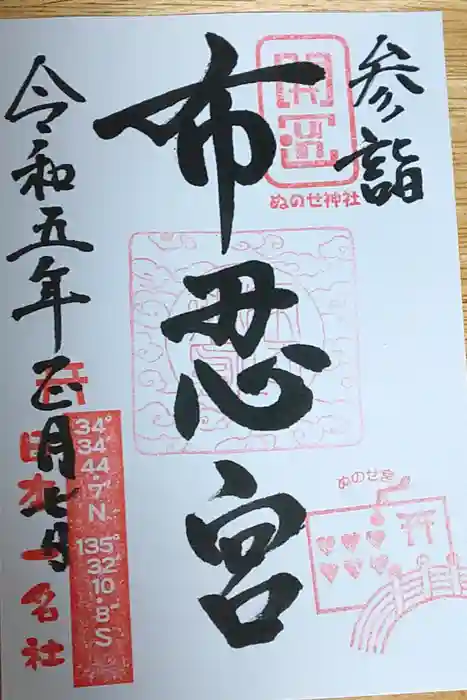 参詣
開運
ぬのせ神社
布忍宮
ぬのせ宮
令和五年正月七日
日本一名社
34°
34′
44
.7″N
135°
32′
10
.8″S